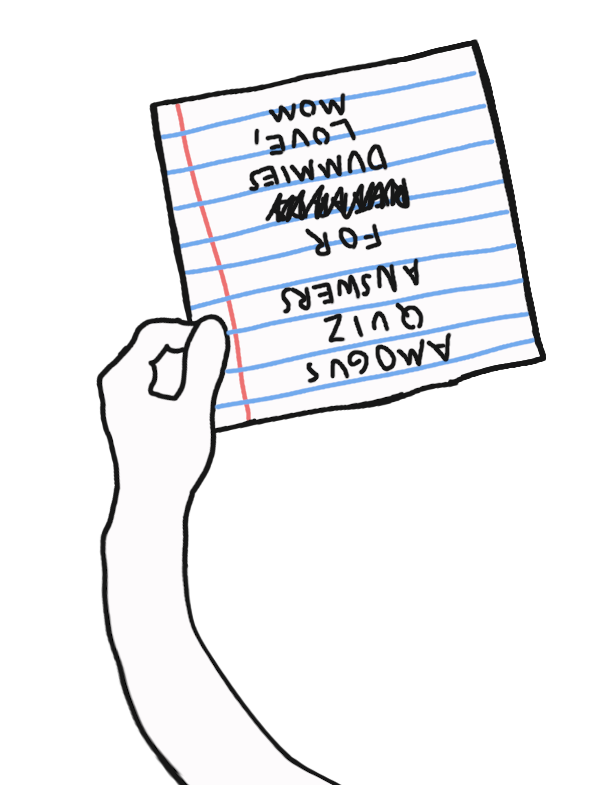 AMOGUS
QUIZ
ANSWERS
FOR
DUMMIES
LOVE,
MOM